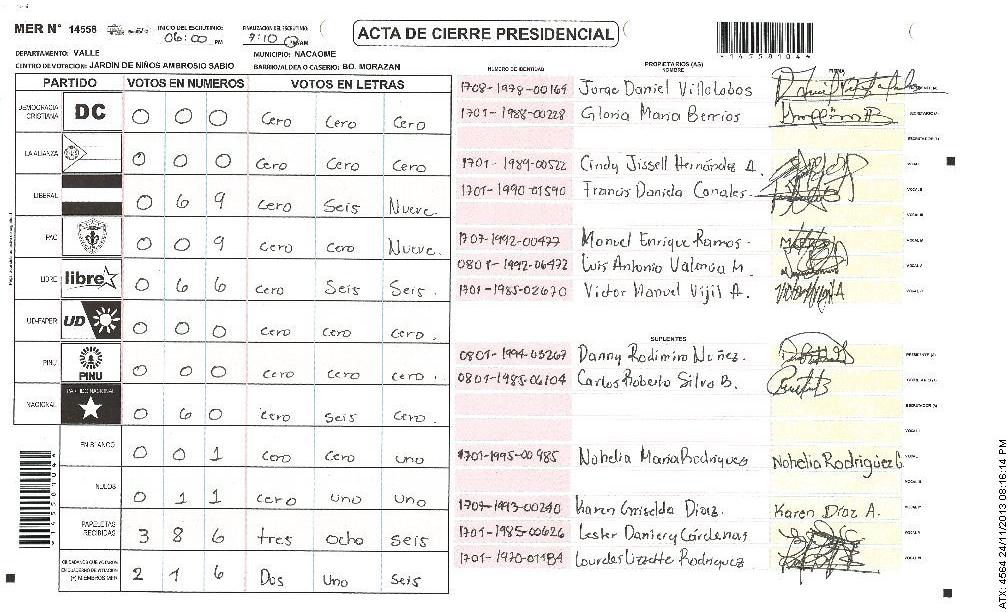 MER N° 14558
INICIO DEL ESCRUTINIO: 06:00 PM
FINALIZACION DEL ESCRUTINIO: 7:10
ACTA DE CIERRE PRESIDENCIAL
DEPARTAMENTO: VALLE
MUNICIPIO: NACAOME
CENTRO DE VOTACION: JARDIN DE NIÑOS AMBROSIO SABIO
BARRIO/ALDEA O CASERIO: BO. MORAZAN
PARTIDO VOTOS EN NUMEROS VOTOS EN LETRAS
DEMOCRACIA CRISTIANA DC 0 0 0 Cero Cero Cero
LA ALIANZA 0 0 0 Cero Cero Cero
LIBERAL 0 6 9 Cero Seis Nueve.
PAC 0 0 9 Cero Cero Nueve.
LIBRE libre 0 6 6 Cero Seis Seis.
UD-FAPER UD 0 0 0 Cero Cero Cero.
PINU PINU 0 0 0 Cero Cero Cero.
NACIONAL PARTIDO NACIONAL 0 6 0 Cero Seis Cero.
EN BLANCO 0 0 1 Cero Cero uno
NULOS 0 1 1 Cero uno uno
PAPELETAS RECIBIDAS 3 8 6 tres ocho seis
CIUDADANOS QUE VOTARON EN CUADERNO DE VOTACION (+) MIEMBROS MER 2 1 6 Dos Uno Seis
NUMERO DE IDENTIDAD
PROPIETARIOS (AS)
NOMBRE
FIRMA
1708-1978-00164 Jorge Daniel Villalobos
1701-1988-00228 Gloria Maria Berrios
1701-1989-00522 Cindy Jissell Hernández A.
1701-1990-01590 Francis Daniela Canales.
1707-1992-00477 Manuel Enrique Ramos.
0801-1992-06472 Luis Antonio Valencia M.
1701-1985-02670 Victor Manuel Vijil A.
SUPLENTES
0801-1994-03267 Danny Rodimiro Nuñez.
0801-1985-06104 Carlos Roberto Silva B.
1701-1995-00985 Nohelia Maria Rodriguez Nohelia Rodríguez
1701-1993-00240 Karen Griselda Diaz. Karen Díaz A.
1701-1985-00626 Lesker Daniery Cárdenas
1701-1970-01184 Lourdes Lizette Rodriguez
145581044
ATX: 4564 24/11/2013 08:16:14 PM